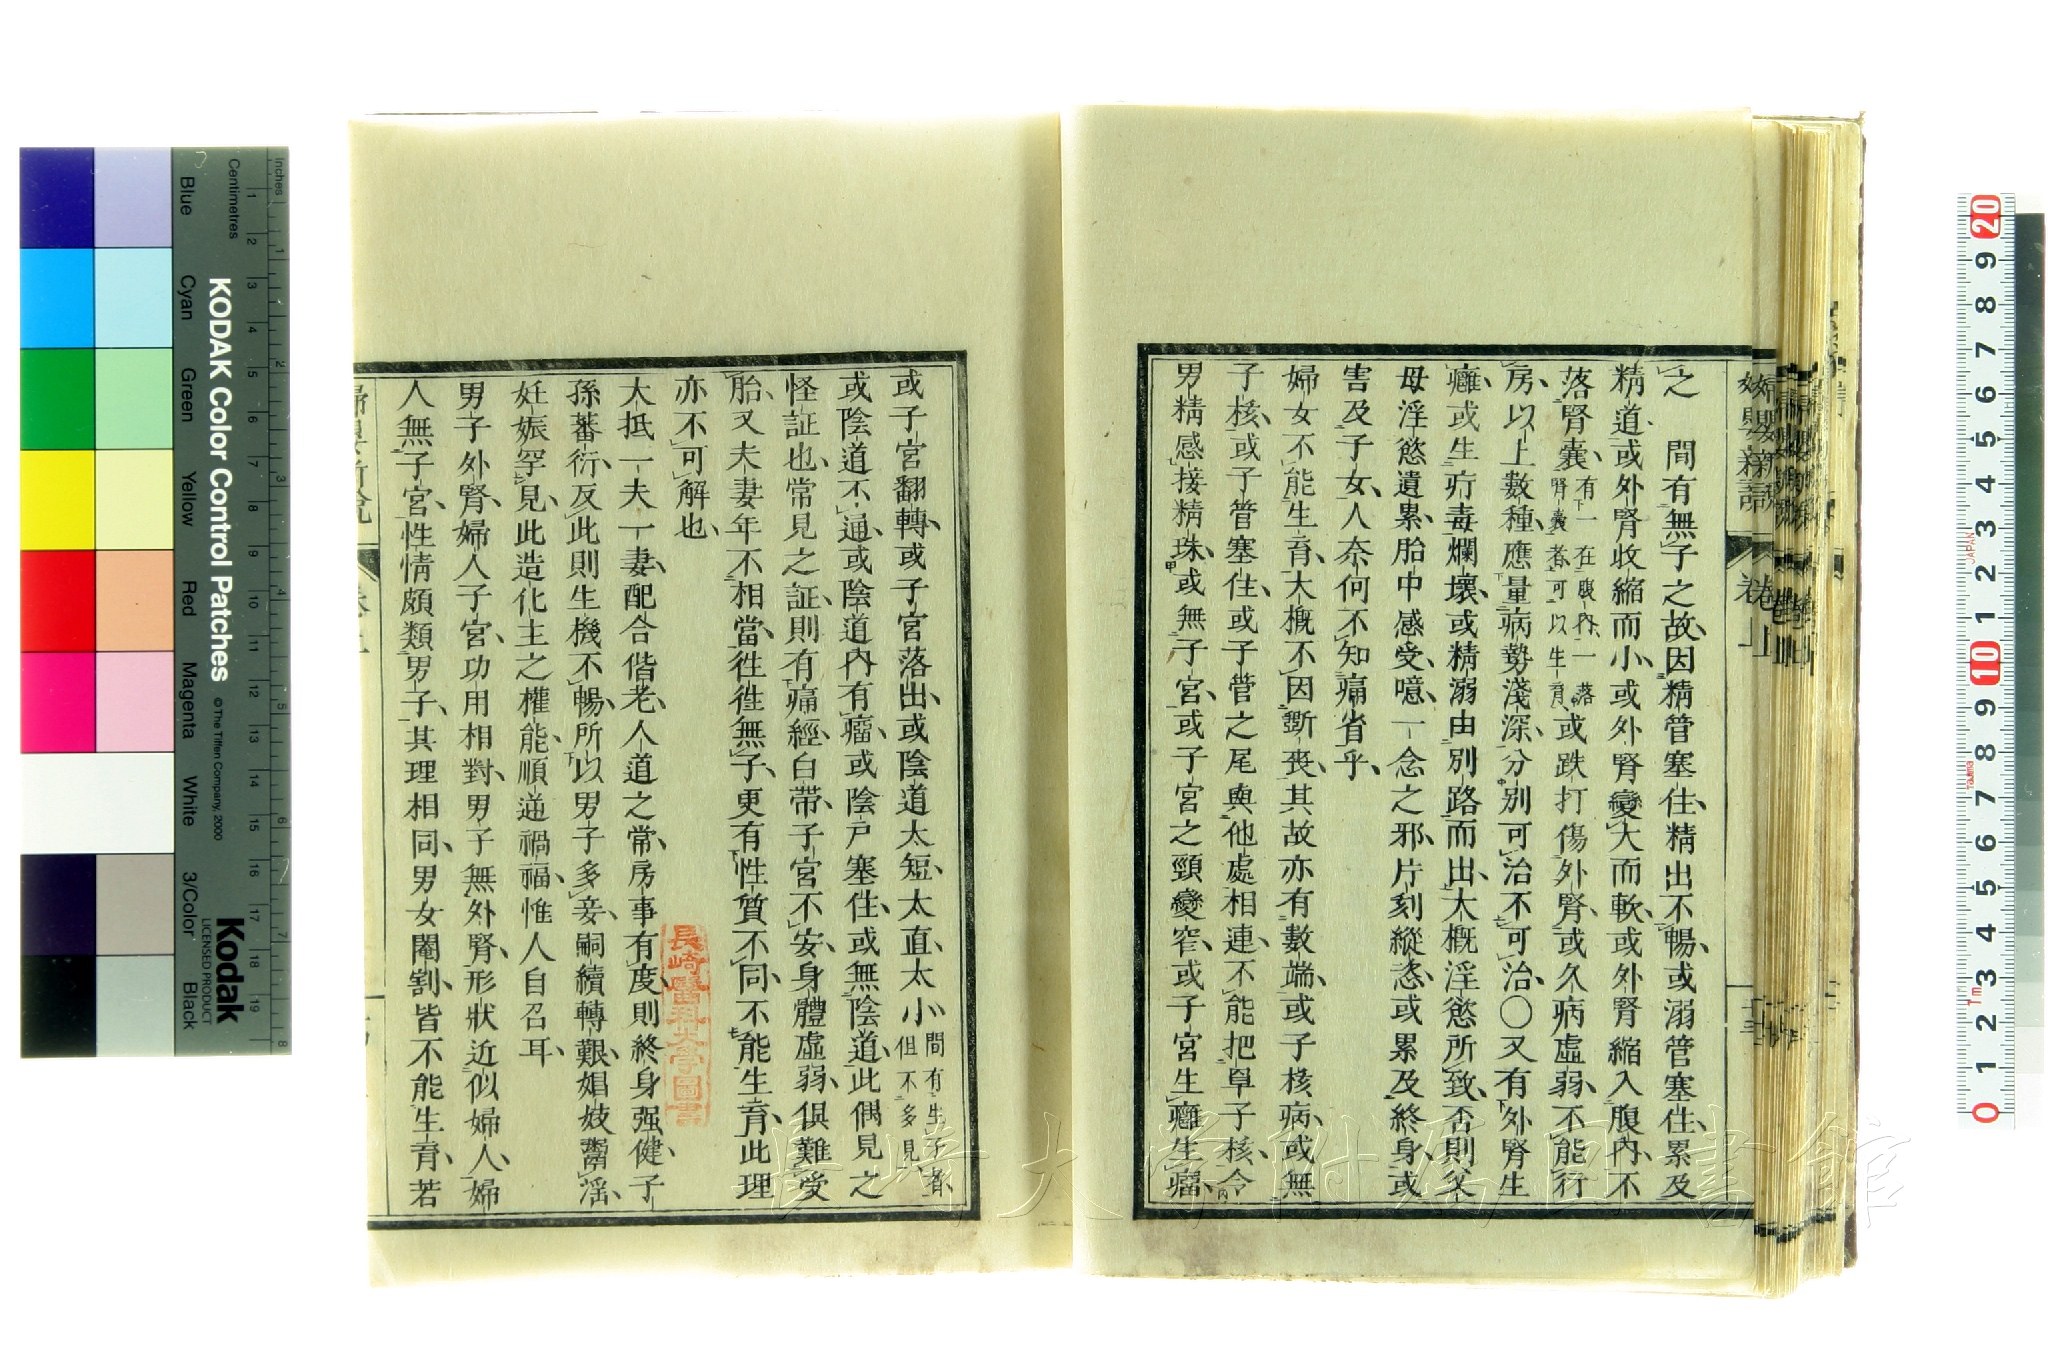 之　間有無子之故因精管塞住精出不暢或溺管塞住累及
精道或外腎收縮而小或外腎變大而軟或外腎縮入腹內不
落腎囊有一在腹內一落腎囊者可以生育或跌打傷外腎或久病虛弱不能行
房以上數種應量病勢淺深分別可治不可治〇又有外腎生
癰或生疔毒爛壞或精溺由別路而出大概淫慾所致否則父
母淫慾遺累胎中感受噫一念之邪片刻縱恣或累及終身或
害及子女人奈何不知痛省乎
婦女不能生育大概不因斵喪其故亦有數端或子核病或無
子核或子管塞住或子管之尾與他處相連不能把皁子核令
男精感接精珠或無子宮或子宮之頸變窄或子宮生癰生瘤
婦嬰新說
卷上
或子宮翻轉或子宮落出或陰道太短太直太小間有生子者但不多見
或陰道不通或陰道內有瘤或陰戶塞住或無陰道此偶見之
怪証也常見之証則有痛經白帶子宮不安身體虛弱俱難受
胎又夫妻年不相當徃徃無子更有性質不同不能生育此理
亦不可解也
大抵一夫一妻配合偕老人道之常房事有度則終身强健子
孫蕃衍反此則生機不暢所以男子多妾嗣續轉艱娼妓鬻淫
妊娠罕見此造化主之權能順逆禍福惟人自召耳
男子外腎婦人子宮功用相對男子無外腎形狀近似婦人婦
人無子宮性情頗類男子其理相同男女閹割皆不能生育若
長崎醫科大學圖書
長崎大学附属図書館
KODAK Color Control Patches
© The Tiffen Company, 2000
Kodak
LICENSED PRODUCT
Inches
Centimetres
Blue
Cyan
Green
Yellow
Red
Magenta
White
3/Color
Black
1 2 3 4 5 6 7 8 9 10 11 12 13 14 15 16 17 18 19
1 2 3 4 5 6 7 8
0 1 2 3 4 5 6 7 8 9 10 1 2 3 4 5 6 7 8 9 20
JAPAN